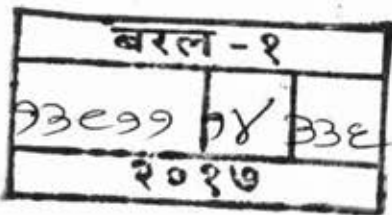 बरल - १
१३९११ १४ ३३६
२०१७